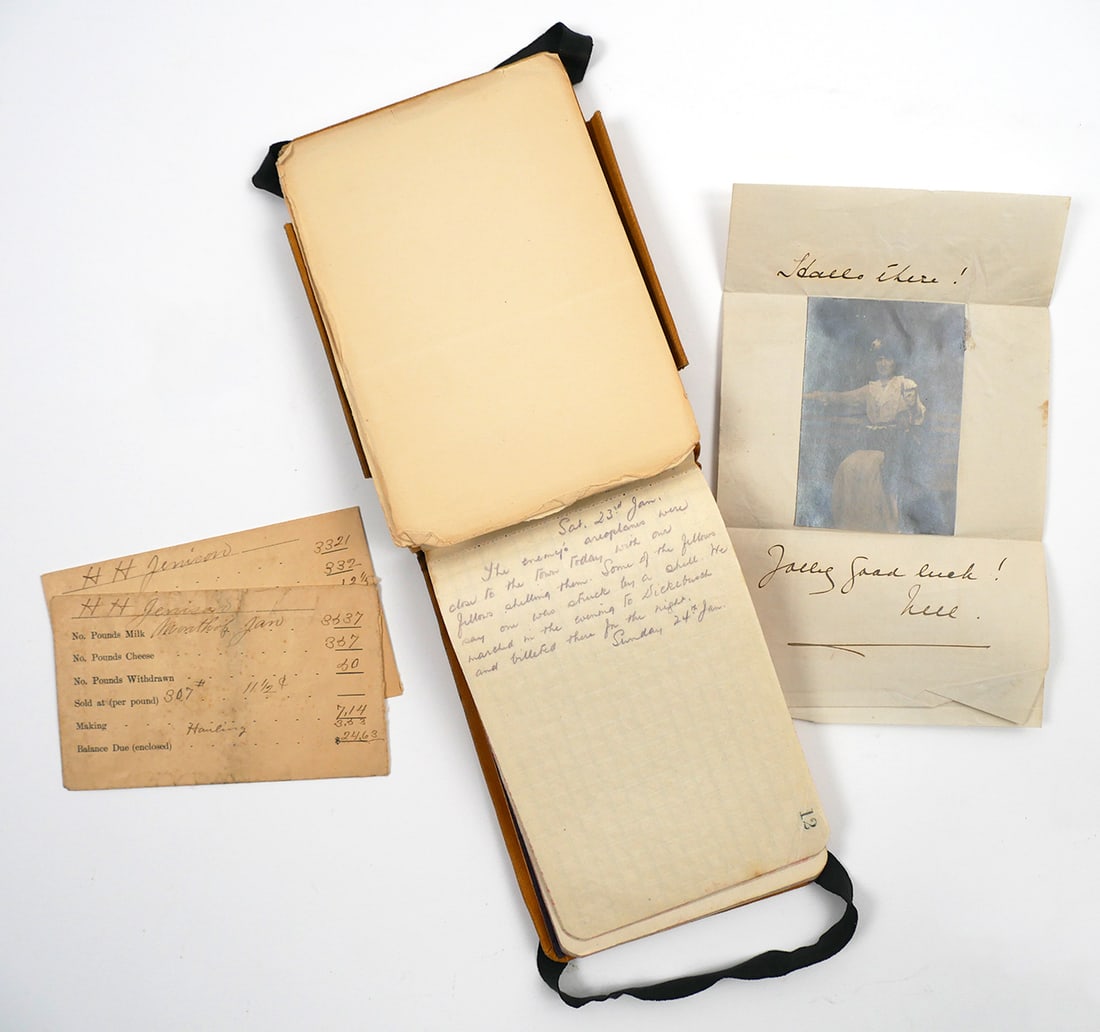 H H Jenison
3321
332
12½
H H Jenison
Month of Jan
No. Pounds Milk 3537
No. Pounds Cheese 357
No. Pounds Withdrawn 50
Sold at (per pound) 307 # 11½ ¢
Making 7,14
Hauling 3.53
Balance Due (enclosed) $24,63
Sat. 23rd Jan.
The enemy's areoplanes were
close to the town today, with our
fellows shelling them. Some of the fellows
say one was struck by a shell. We
marched in the evening to Dickebusch
and billeted there for the night.
Sunday 24th Jan.
12
Hallo there!
Jolly Good luck!
Nell.